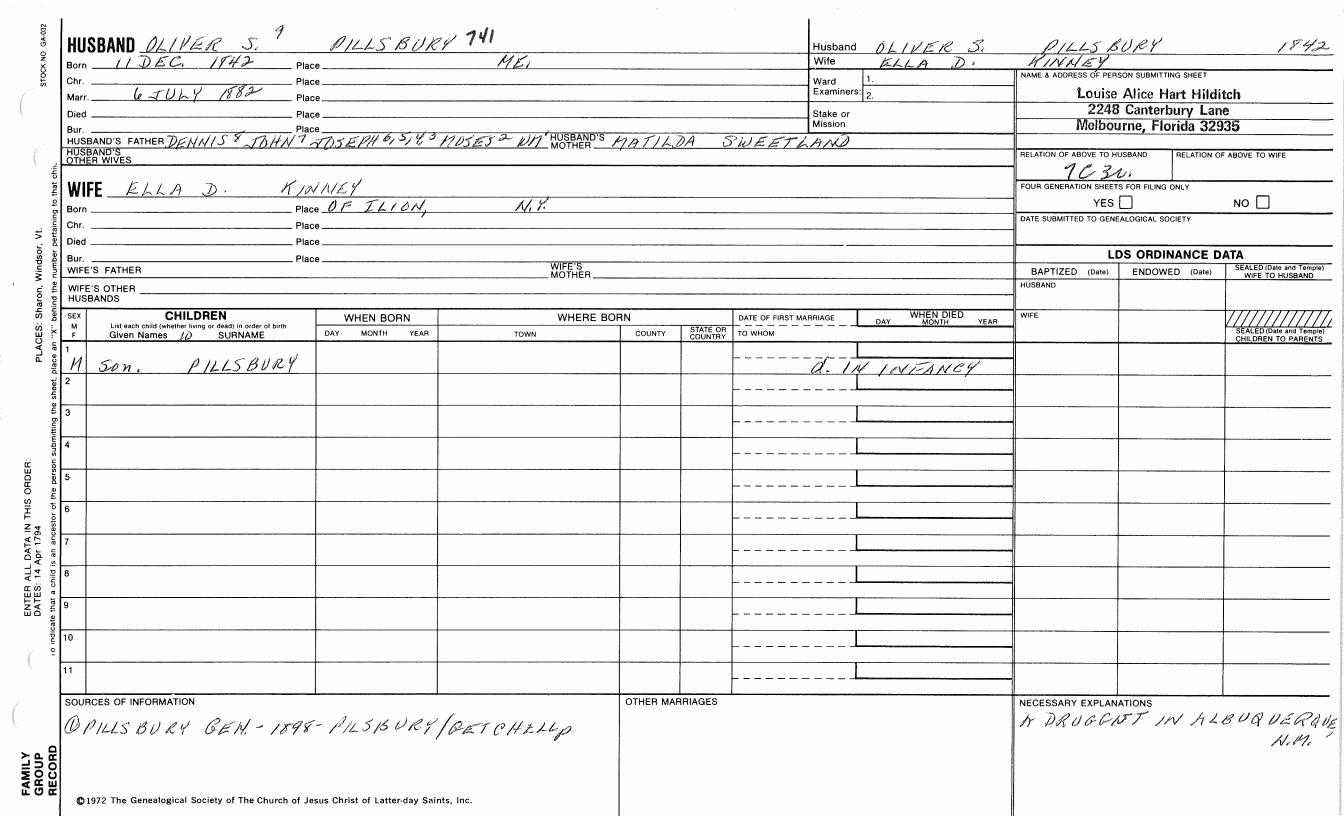 STOCK NO. GA-002
HUSBAND OLIVER S. 9 PILLSBURY 741
Born 11 DEC. 1842 Place ME.
Chr. Place
Marr. 6 JULY 1882 Place
Died Place
Bur. Place
HUSBAND'S FATHER DENNIS 8 JOHN 7 JOSEPH 6,5,4,3 MOSES 2 WM 1 HUSBAND'S MOTHER MATILDA SWEETLAND
HUSBAND'S OTHER WIVES
WIFE ELLA D. KINNEY
Born Place OF ILION, N.Y.
Chr. Place
Died Place
Bur. Place
WIFE'S FATHER WIFE'S MOTHER
WIFE'S OTHER HUSBANDS
Husband OLIVER S. PILLSBURY 1842
Wife ELLA D. KINNEY
Ward Examiners: 1. 2.
Stake or Mission
NAME & ADDRESS OF PERSON SUBMITTING SHEET
Louise Alice Hart Hilditch
2248 Canterbury Lane
Melbourne, Florida 32935
RELATION OF ABOVE TO HUSBAND RELATION OF ABOVE TO WIFE
7C3R.
FOUR GENERATION SHEETS FOR FILING ONLY
YES NO
DATE SUBMITTED TO GENEALOGICAL SOCIETY
LDS ORDINANCE DATA
BAPTIZED (Date) ENDOWED (Date) SEALED (Date and Temple) WIFE TO HUSBAND
HUSBAND
WIFE
SEALED (Date and Temple) CHILDREN TO PARENTS
SEX M F
CHILDREN
List each child (whether living or dead) in order of birth
Given Names 10 SURNAME
WHEN BORN
DAY MONTH YEAR
WHERE BORN
TOWN COUNTY STATE OR COUNTRY
DATE OF FIRST MARRIAGE
TO WHOM
WHEN DIED
DAY MONTH YEAR
1
M Son. PILLSBURY d. IN INFANCY
2
3
4
5
6
7
8
9
10
11
SOURCES OF INFORMATION
① PILLSBURY GEN. - 1898 - PILSBURY/GETCHELL p
OTHER MARRIAGES
NECESSARY EXPLANATIONS
A DRUGGIST IN ALBUQUERQUE,
N.M.
©1972 The Genealogical Society of The Church of Jesus Christ of Latter-day Saints, Inc.
ENTER ALL DATA IN THIS ORDER:
DATES: 14 Apr 1794
PLACES: Sharon, Windsor, Vt.
To indicate that a child is an ancestor of the person submitting the sheet, place an "X" behind the number pertaining to that chil.
FAMILY
GROUP
RECORD